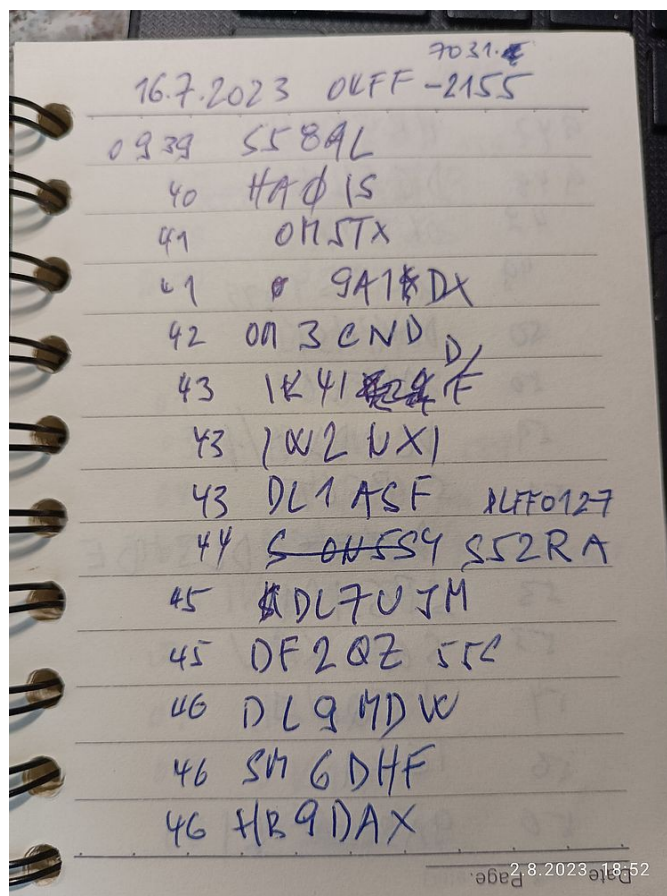 7031.
16.7.2023 OKFF -2155
0939 S58AL
40 HAØIS
41 OM5TX
41 9A1DX
42 OM3CND
43 IK4I D/F
43 IW2NXI
43 DL1ASF DLFF0127
44 S52RA
45 DL7UJM
45 DF2QZ 55
46 DL9MDW
46 SM6DHF
46 HB9DAX
2.8.2023 18:52
Date
Page.